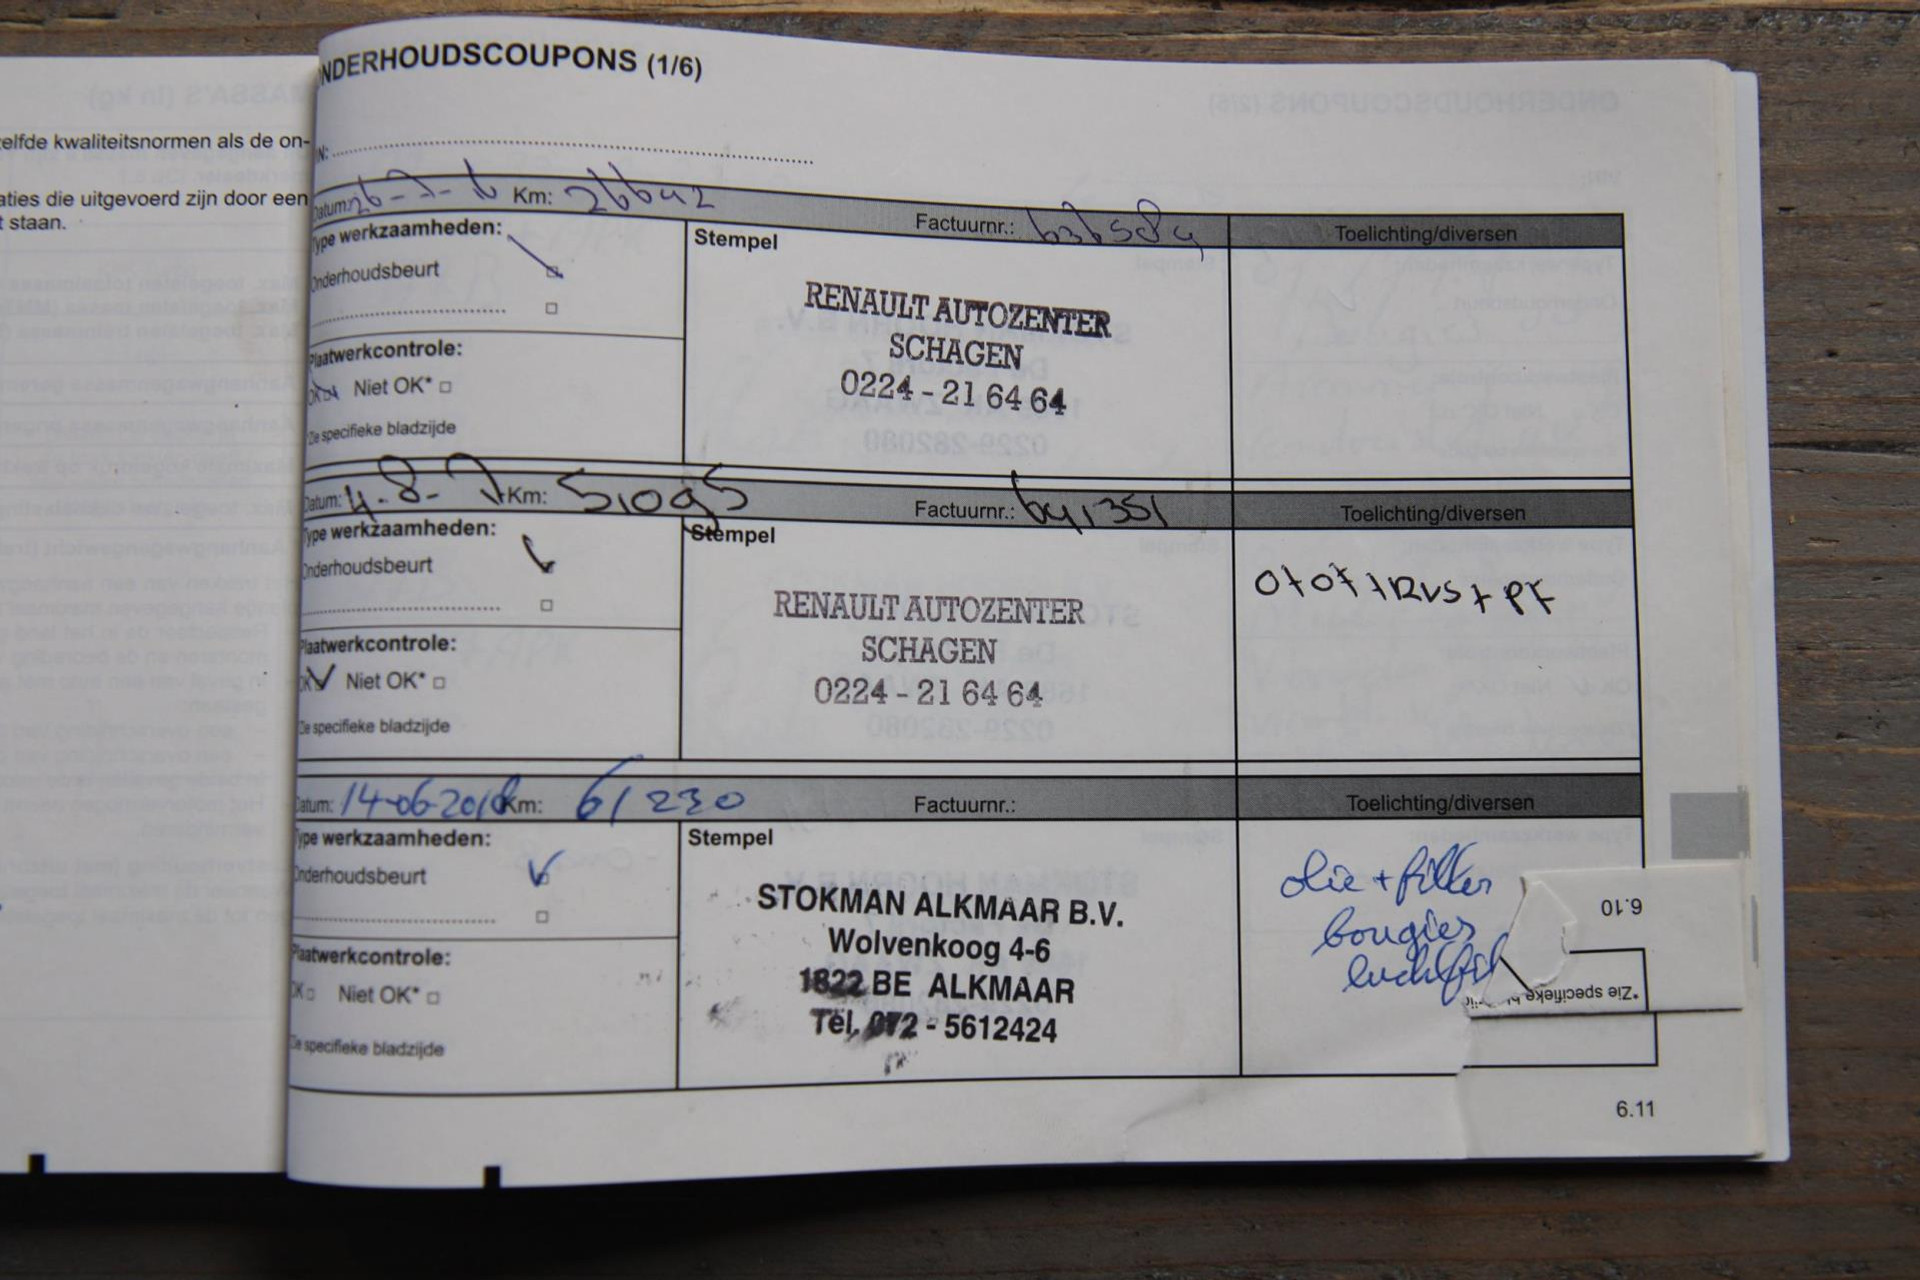 elfde kwaliteitsnormen als de on-
aties die uitgevoerd zijn door een
t staan.
NDERHOUDSCOUPONS (1/6)
IN:
Datum: 26-7-16 Km: 26642 Factuurnr.: Toelichting/diversen
Type werkzaamheden: Stempel
Onderhoudsbeurt
RENAULT AUTOZENTER
SCHAGEN
0224 - 21 64 64
Plaatwerkcontrole:
OK Niet OK*
*Zie specifieke bladzijde
Datum: 4-8-17 Km: 51095 Factuurnr.: 641351 Toelichting/diversen
Type werkzaamheden: Stempel
Onderhoudsbeurt
RENAULT AUTOZENTER
SCHAGEN
0224 - 21 64 64
Plaatwerkcontrole:
OK Niet OK*
Zie specifieke bladzijde
Datum: 14-06-2018 Km: 61230 Factuurnr.: Toelichting/diversen
Type werkzaamheden: Stempel
Onderhoudsbeurt
STOKMAN ALKMAAR B.V.
Wolvenkoog 4-6
1822 BE ALKMAAR
Tel. 072 - 5612424
olie + filter
bougies
luchtfil
Plaatwerkcontrole:
OK Niet OK*
Zie specifieke bladzijde
6.10
*Zie specifieke
6.11